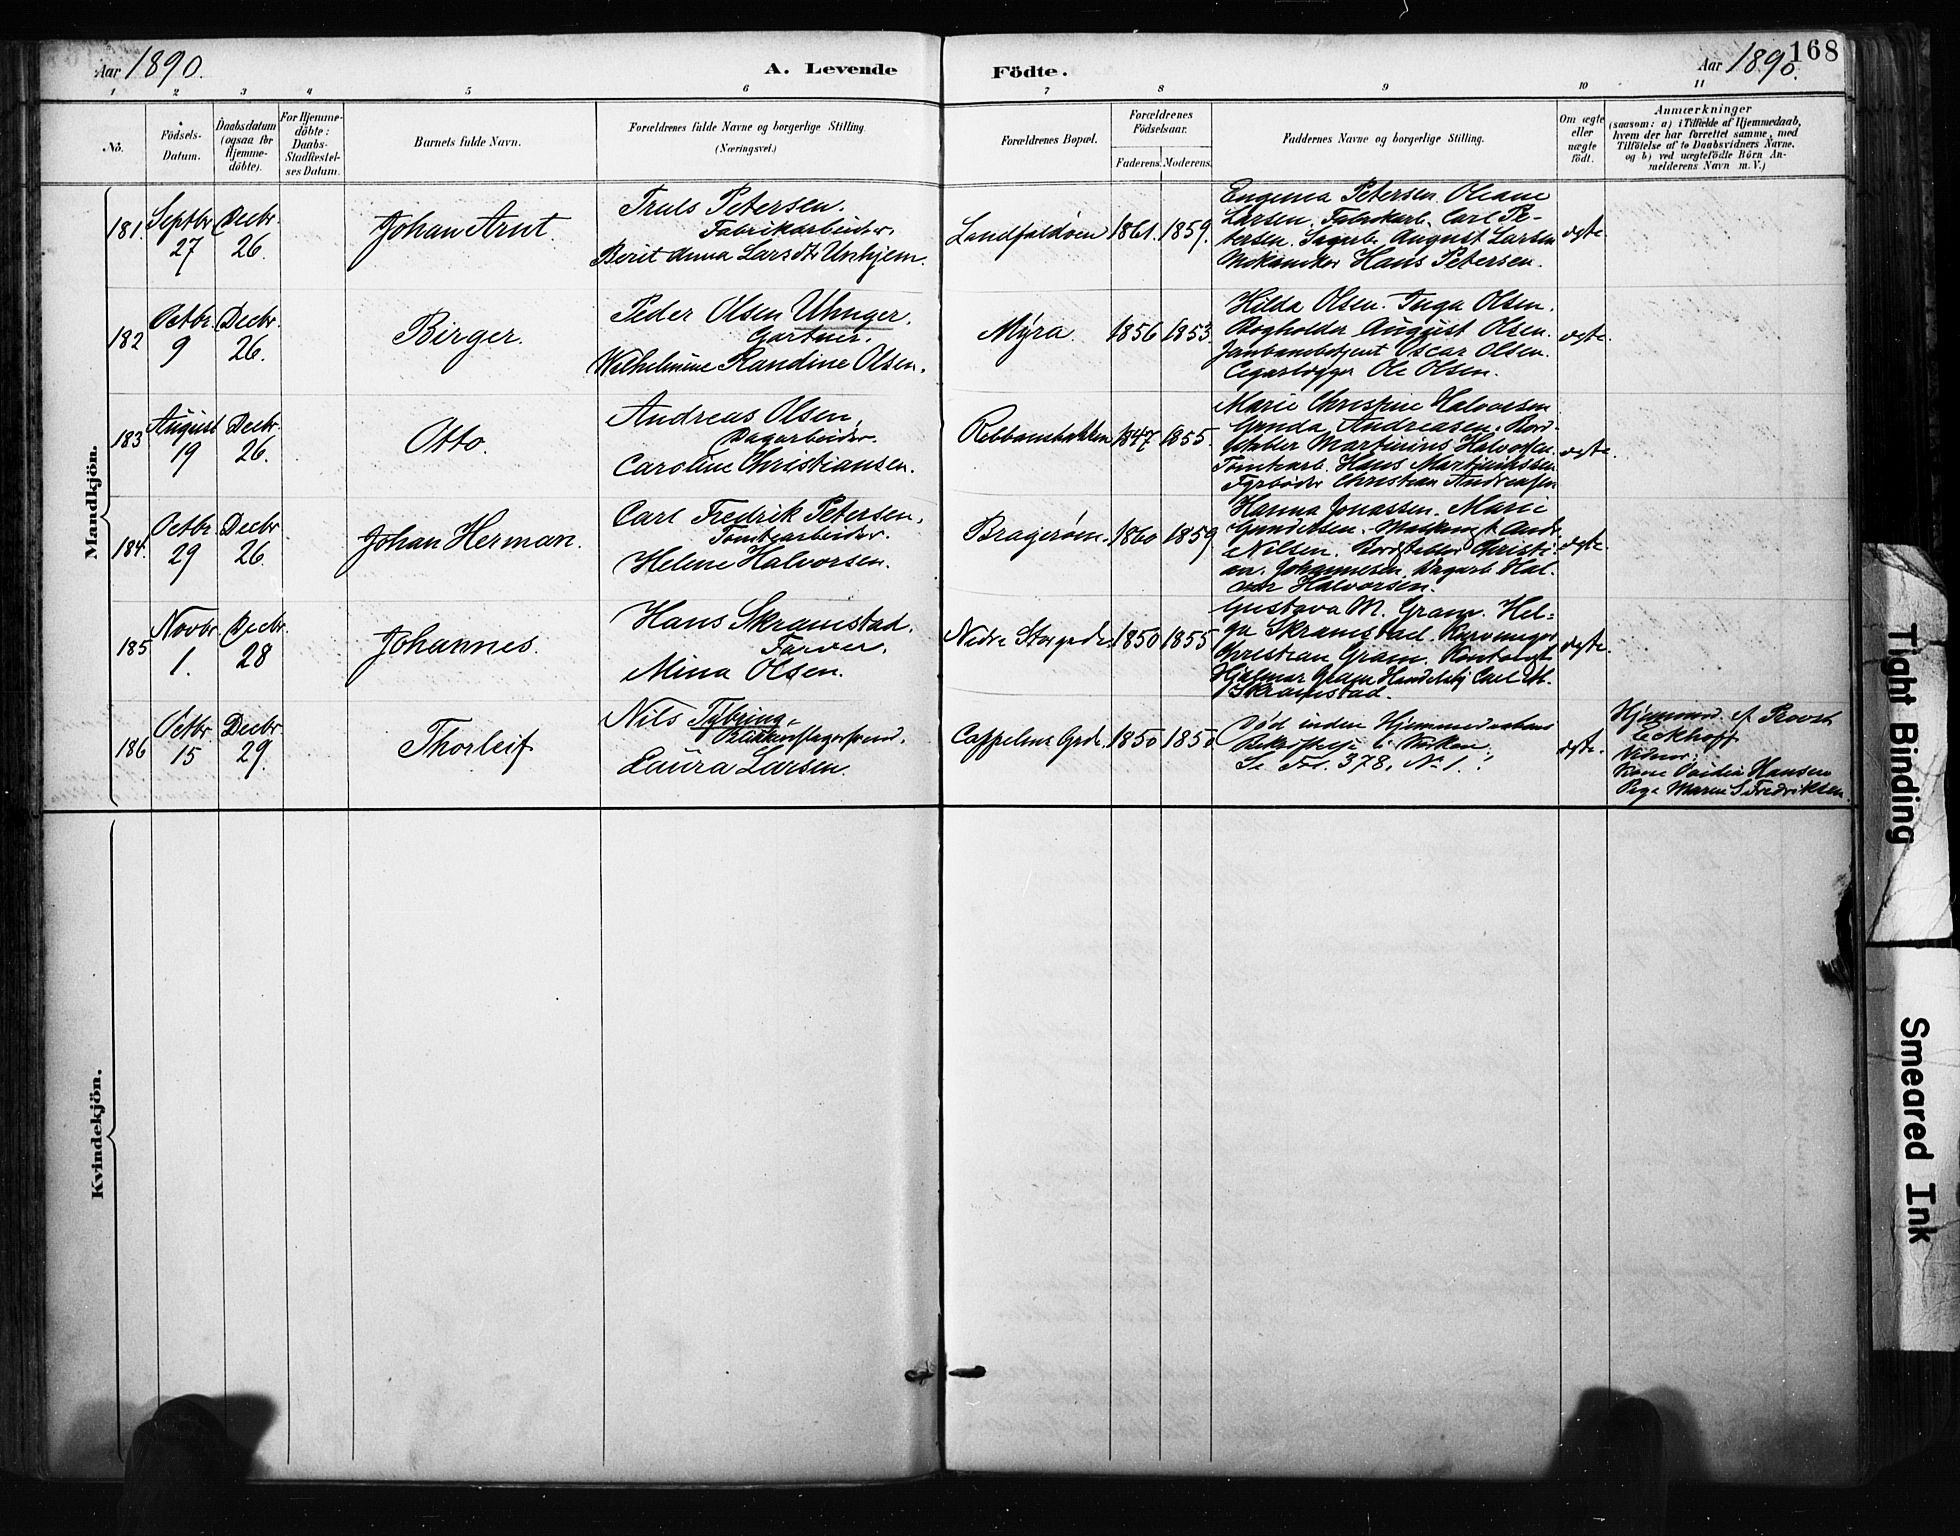 Aar 1890.
A. Levende
Födte.
Aar 1890.
168
1 2 3 4 5 6 7 8 9 10 11
No.
Födsels-
Datum.
Daabsdatum
(ogsaa for
Hjemme-
döbte).
For Hjemme-
döbte:
Daabs-
Stadfæstel-
ses Datum.
Barnets fulde Navn.
Forældrenes fulde Navne og borgerlige Stilling.
(Næringsvei.)
Forældrenes Bopæl.
Forældrenes
Födselsaar.
Faderens. Moderens.
Faddernes Navne og borgerlige Stilling.
Om ægte
eller
uægte
födt.
Anmærkninger
(saasom: a) i Tilfælde af Hjemmedaab,
hvem der har forrettet samme, med
Tilföielse af to Daabsvidners Navne,
og b) ved uægtefödte Börn An-
melderens Navn m. V.)
Mandkjön.
181.
Septbr.
27
Decbr.
26.
Johan Arnt.
Truls Petersen.
Fabrikarbeider.
Berit Anna Larsdtr Unhjem.
Landfaldöen
1861. 1859.
Eugenia Petersen. Oleane
Larsen. Fabrikarb. Carl Pe-
tersen. Sagarb. August Larsen
Mekaniker Hans Petersen.
ægte.
182
Octbr.
9
Decbr.
26.
Birger.
Peder Olsen Uhnger.
Gartner.
Wilhelmine Randine Olsen.
Myra.
1856 1853.
Hilda Olsen. Inga Olsen.
Bogholder August Olsen.
Janbanebetjent Oscar Olsen.
Cigarlægger Ole Olsen.
ægte.
183
August
19
Decbr.
26.
Otto.
Andreas Olsen,
Dagarbeider.
Caroline Christiansen.
Rebbansbakken
1847 1855.
Marie Christine Halvorsen
Gunda Andreasen. Bord-
stabler Martinius Halvorsen.
Tomtearb. Hans
Fyrböder Christian Andreassen
ægte.
184.
Octbr.
29
Decbr.
26.
Johan Herman.
Carl Fredrik Petersen.
Tomtearbeider.
Helene Halvorsen.
Bragerøen.
1860 1859
Hanna Jonassen. Marie
Gundersen.
Nilsen. Bordstabler Christi-
an. Johannesen Dagarb. Hal-
vor Halvorsen.
ægte.
185
Novbr
1.
Decbr.
28
Johannes.
Hans Skramstad.
Farver.
Mina Olsen.
Nedre Storgade.
1850 1855
Gustava M. Gram. Hel-
ga Skramstad.
Christian Gram. Kontorist
Hjalmar Gram Handelsbj Carl M.
Skramstad.
ægte.
186
Octbr.
15
Decbr.
29.
Thorleif
Nils Tybring,
Laura Larsen.
Cappelens Grd.
1850 1850
Död inden Hjemmedaabens
Bekræftelse i Kirken.
Se Fol. 378, No 1.
ægte.
Hjemmed. af Provst
Eckhoff
Vidner:
Kone Hansen
Pige Maren S. Fredriksen.
Kvindekjön.
Tight Binding
Smeared Ink